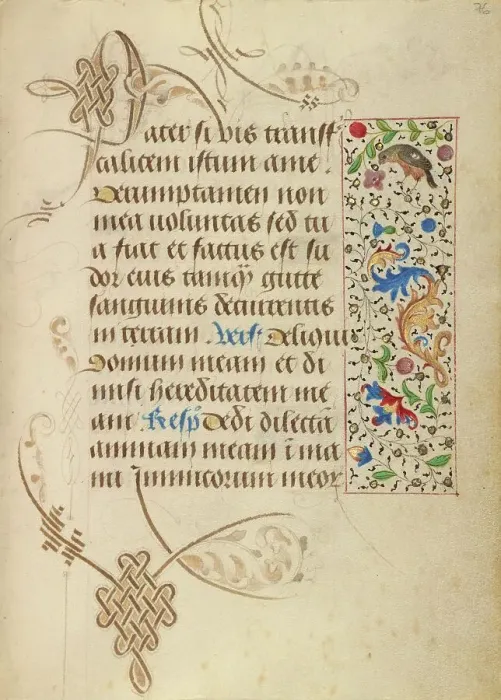 76
Pater si vis transf
calicem istum a me.
Verumptamen non
mea voluntas sed tu
a fiat et factus est su
dor eius tamq̃ gutte
sanguinis decurrentis
in terram. Vers̃ Reliqui
domum meam et di
misi hereditatem me
am Resp̃ Dedi dilectã
animam meam ĩ ma
nu Inimicorum meoꝝ